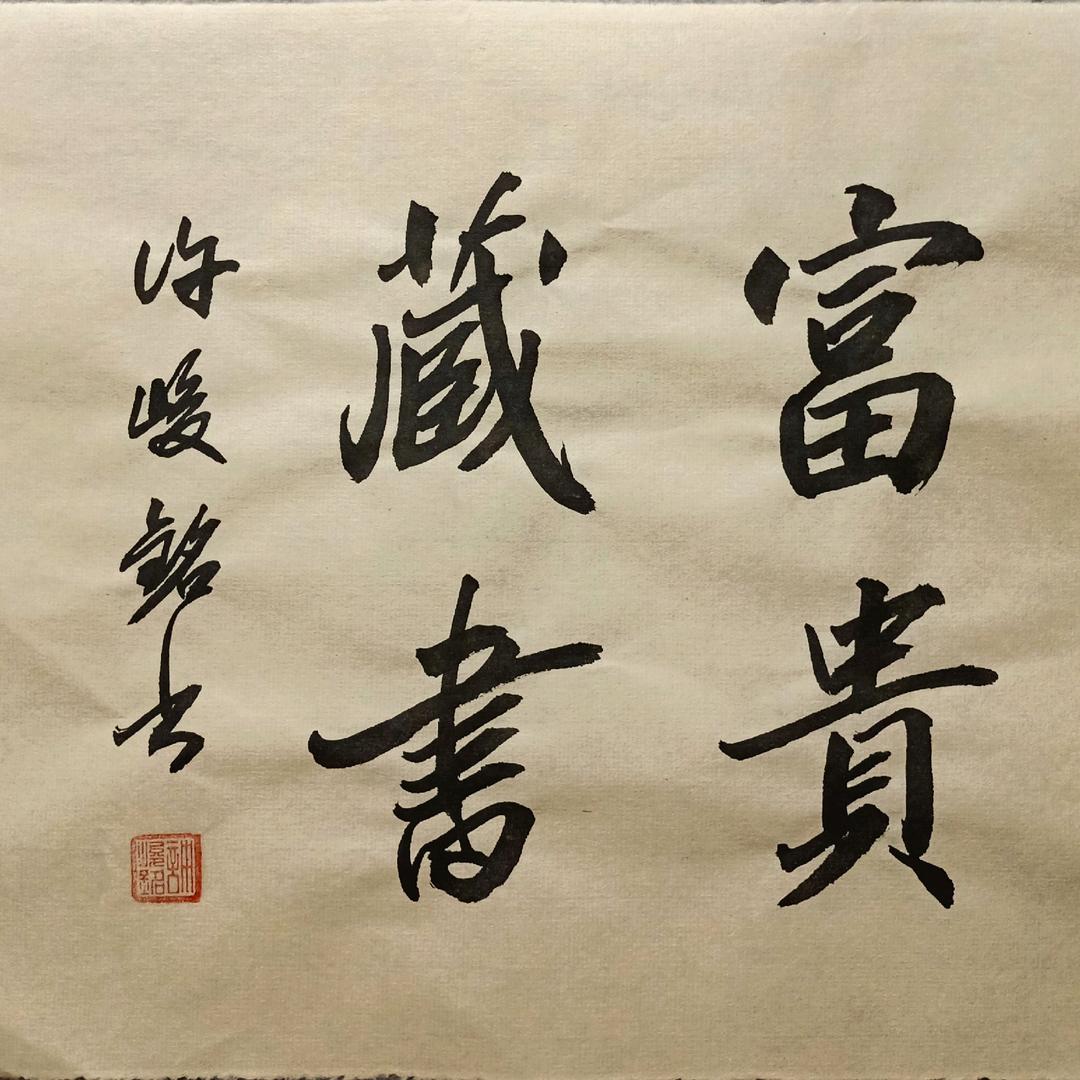 富貴
藏書
許峻銘書